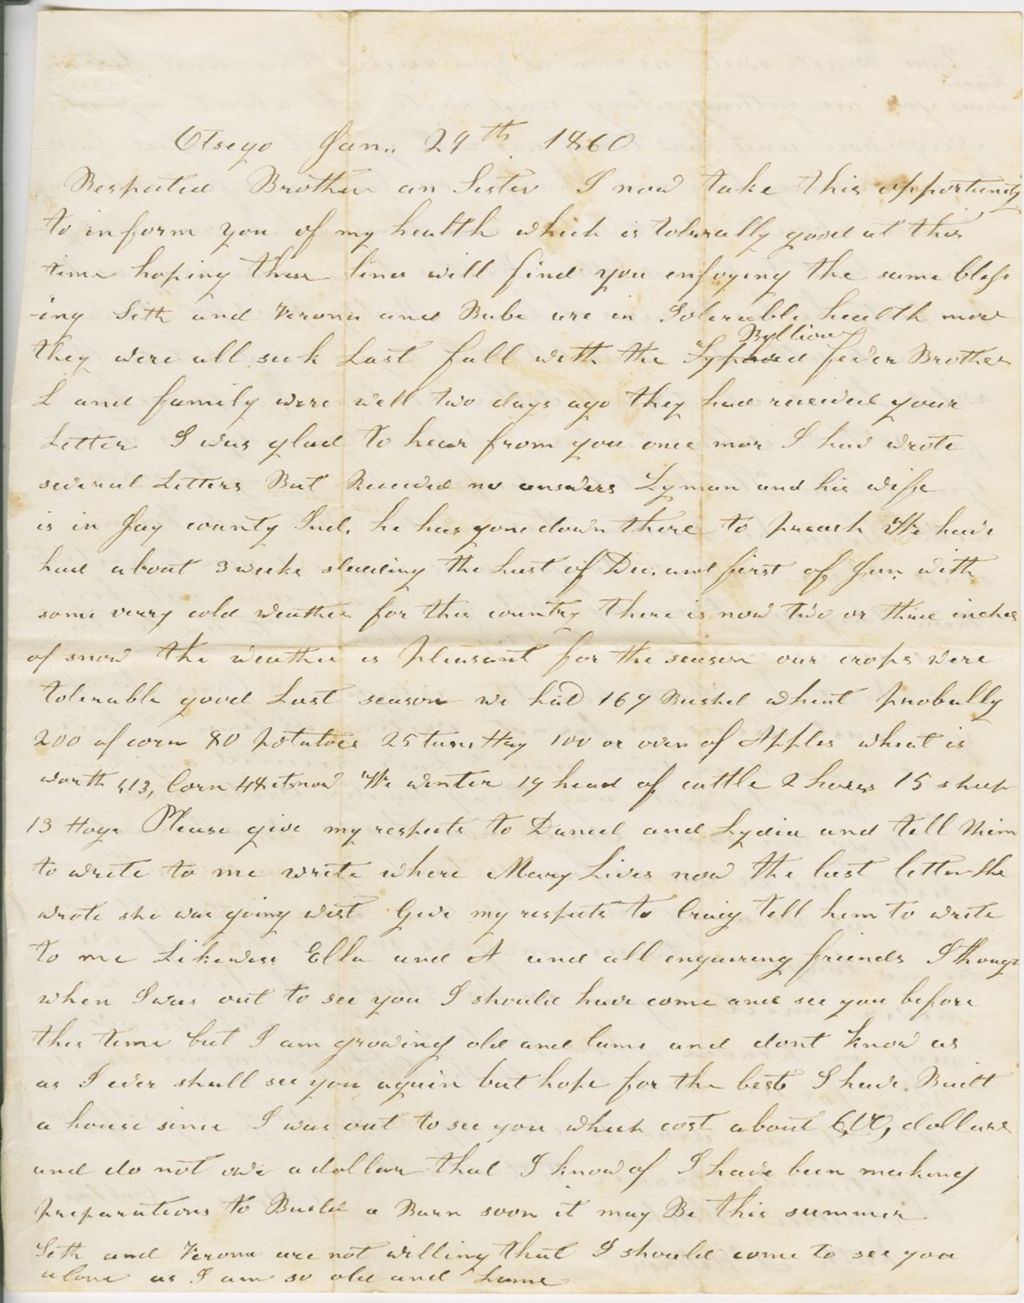 Otsego Jan.. 29th 1860
Respected Brother an Sister I now take this opportunity
to inform you of my health which is tolerally good at this
time hoping these lines will find you enjoying the same bless
-ing Seth and Verona and Bube are in Tolerable health now
they were all sick Last fall with the Byllious fever Brother
L and family were well two days ago they had received your
Letter I was glad to hear from you once mor I had wrote
several Letters But Received no answers Lyman and his wife
is in Jay county Ind. he has gone down there to preach We have
had about 3 weeks sleeding the last of Dec. and first of Jan. with
some verry cold weather for this country There is now two or three inches
of snow the weather is pleasant for the season our crops were
tolerable good Last season we had 169 Bushel wheat probally
200 of corn 80 potatoes 25 tuns Hay 100 or over of Apples wheat is
worth $13, Corn 48 cts now We winter 19 head of cattle 2 horses 15 sheep
13 Hogs Please give my respects to Daniel and Lydia and tell them
to write to me write where Mary Lives now the last letter she
wrote she was going west Give my respects to Craig tell him to write
to me Likewise Ella and A and all enquiring friends I though
when I was out to see you I should have come and see you before
this time but I am growing old and lame and dont know as
as I ever shall see you again but hope for the best I have Built
a house since I was out to see you which cost about 600, dollars
and do not owe a dollar that I know of I have been making
preparations to Build a Barn soon it may Be this summer
Seth and Verona are not willing that I should come to see you
alone as I am so old and Lame